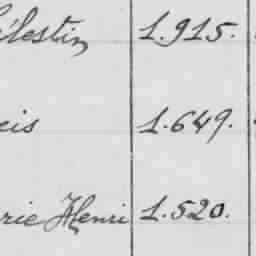 élestin 1.915.
cis 1.649.
rie Henri 1.520.